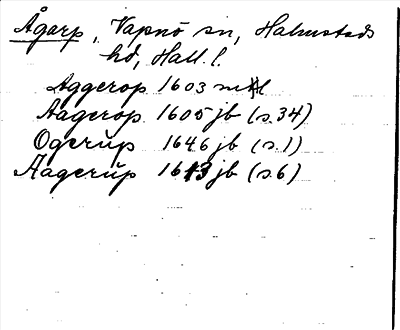 Ågarp, Vapnö sn, Halmstads
hd, Hall. l.
Aggerop 1603 mtl
Aagerop 1605 jb (s. 34)
Ogerup 1646 jb (s. 1)
Aagerup 1613 jb (s. 6)